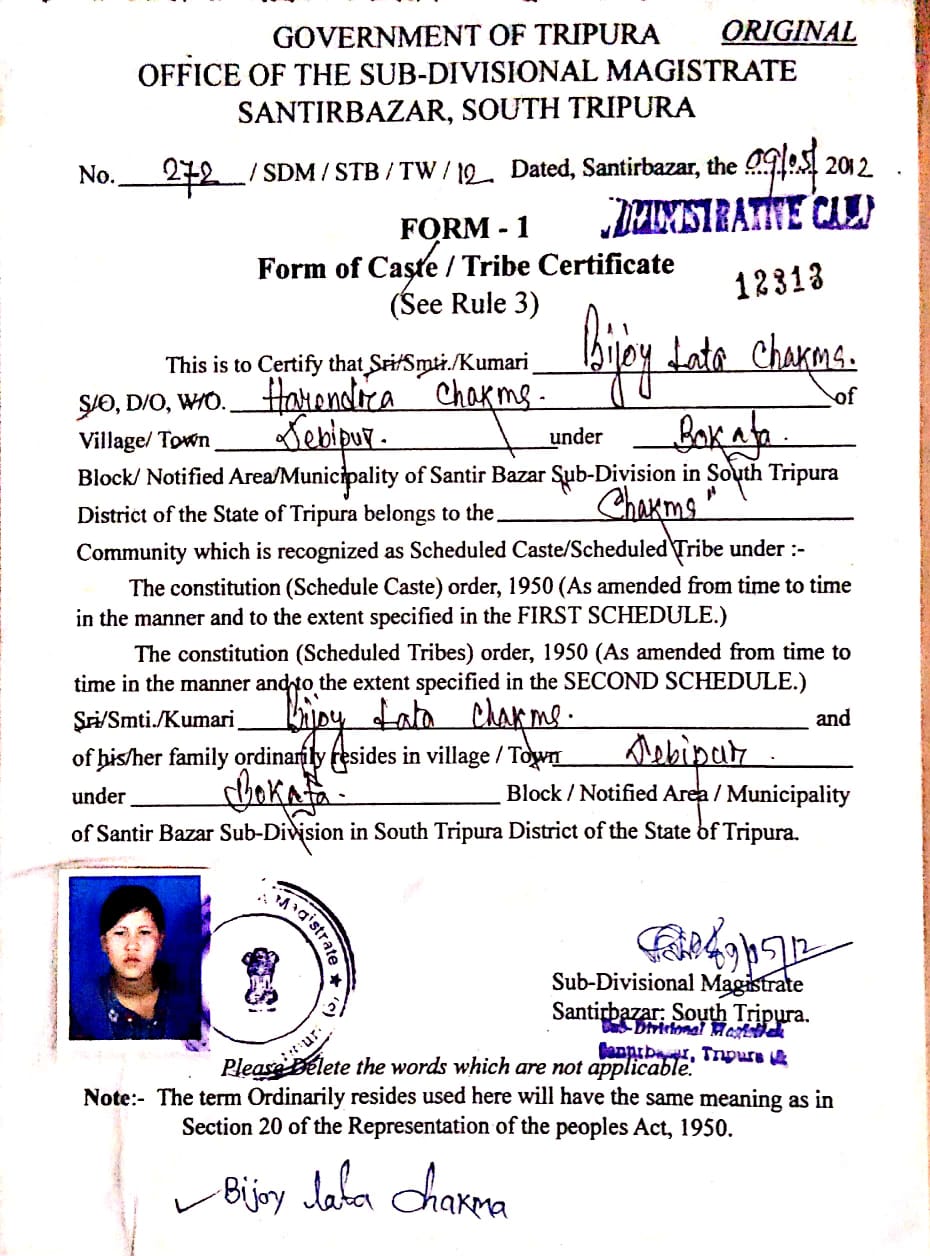 GOVERNMENT OF TRIPURA ORIGINAL
OFFICE OF THE SUB-DIVISIONAL MAGISTRATE
SANTIRBAZAR, SOUTH TRIPURA
No. 272 / SDM / STB / TW / 12 Dated, Santirbazar, the 09/05/ 2012
FORM - 1
Form of Caste / Tribe Certificate
12313
(See Rule 3)
This is to Certify that Sri/Smti./Kumari Bijoy Lata Chakma.
S/O, D/O, W/O. Harendra Chakma. of
Village/ Town Debipur. under Bokafa.
Block/ Notified Area/Municipality of Santir Bazar Sub-Division in South Tripura
District of the State of Tripura belongs to the Chakma"
Community which is recognized as Scheduled Caste/Scheduled Tribe under :-
The constitution (Schedule Caste) order, 1950 (As amended from time to time
in the manner and to the extent specified in the FIRST SCHEDULE.)
The constitution (Scheduled Tribes) order, 1950 (As amended from time to
time in the manner and to the extent specified in the SECOND SCHEDULE.)
Sri/Smti./Kumari Bijoy Lata Chakma. and
of his/her family ordinarily resides in village / Town Debipur.
under Bokafa. Block / Notified Area / Municipality
of Santir Bazar Sub-Division in South Tripura District of the State of Tripura.
Magistrate ★
09/05/12
Sub-Divisional Magistrate
Santirbazar: South Tripura.
Sub-Divisional Magistrate
Santirbazar, Tripura
Please Delete the words which are not applicable.
Note:- The term Ordinarily resides used here will have the same meaning as in
Section 20 of the Representation of the peoples Act, 1950.
Bijoy lata chakma